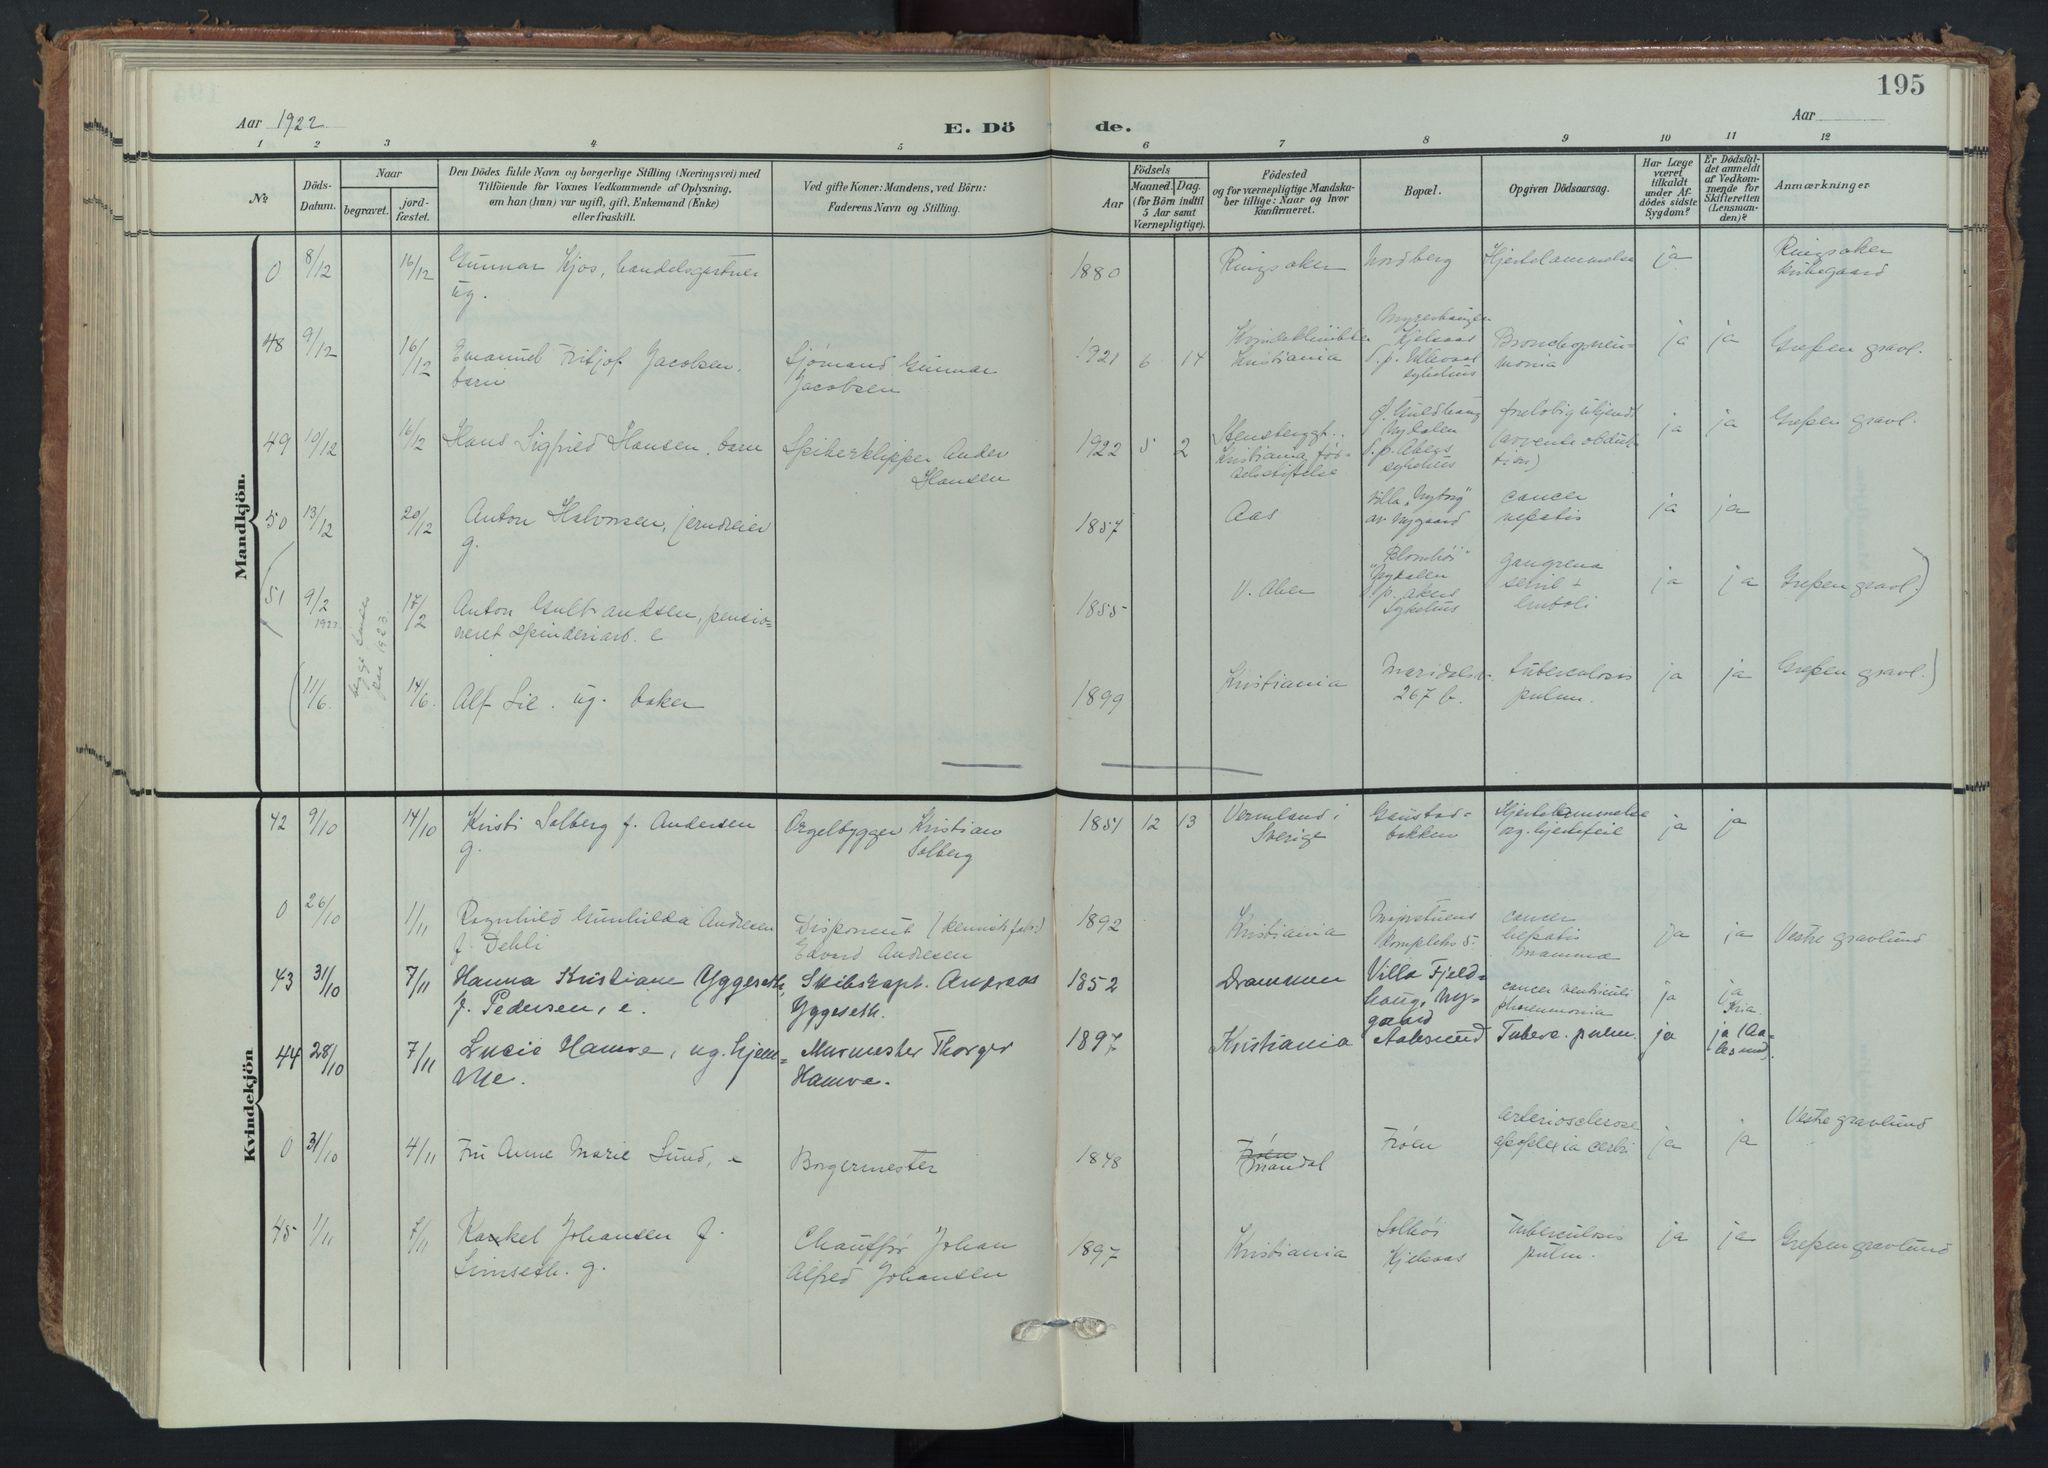 195
Aar 1922
E. Dö de.
Aar
1 2 3 4 5 6 7 8 9 10 11 12
No
Döds-Datum.
Naar
begravet.
jord-fæstet.
Den Dödes fulde Navn og borgerlige Stilling (Næringsvei) med
Tilföiende for Voxnes Vedkommende af Oplysning,
om han (hun) var ugift, gift, Enkemand (Enke)
eller fraskilt.
Ved gifte Koner: Mandens, ved Börn:
Faderens Navn og Stilling.
Födsels
Aar
Maaned. Dag.
(for Börn indtil
5 Aar samt
Værnepligtige).
Födested
og for værnepligtige Mandska-
ber tillige: Naar og hvor
Konfirmeret.
Bopæl.
Opgiven Dödsaarsag.
Har Læge
været
tilkaldt
under Af-
dödes sidste
Sygdom?
Er Dödsfal-
det anmeldt
af Vedkom-
mende for
Skifteretten
(Lensman-
den)?
Anmærkninger
Mandkjön.
0 8/12 16/12 Gunnar Kjos, handelsgartner 1880 Ringsaker Nordberg Hjertelammelse ja Ringsaker
ug. kirkegaard
48 9/12 16/12 Emanuel Fritjof Jacobsen. Sjømand Gunnar 1921 6 14 Kvindeklinikken Myrerhaugen Bronchopneu- ja ja Grefsen gravl.
barn Jacobsen Kristiania Kjelsaas monia
d.p. Ullevaal
sykehus
49 10/12 16/12 Hans Sigfried Hansen. barn Spikerklipper Anders 1922 5 2 Stensberggt. Nydalen (avvente obduk- ja ja Grefsen gravl.
Hansen Kristiania fød- d.p. Akers tion)
selsstiftelse sykehus
50 13/12 20/12 Anton Halvorsen, jerndreier 1857 Aas Villa "Nytorg" cancer ja ja
g. av Nygaard hepatis
(51 9/2 17/2 Anton Gulbrandsen, pensio- 1855 V. Aker "Blomhøi" gangrena ja ja Grefsen gravl.)
1923 neret spinderiarb. e Nydalen senil +
d.p. akers emboli
sykehus
1923.
(11/6. 14/6. Alf Lie. ug. baker 1899 Kristiania Maridalsv. tuberculosis ja ja Grefsen gravl.)
267 b. pulm.
Kvindekjön
42 9/10 14/10 Kristi Solberg f. Andersen Orgelbygger Kristian 1851 12 13 Vermland i Gaustad- Hjertelammelse ja ja
g. Solberg Sverige bakken og hjertefeil
0 26/10 1/11 Ragnhild Gunhilda Andresen Disponent (kemisk fabr.) 1892 Kristiania Majorstuens cancer ja ja Vestre gravlund
f. Dehli Edvard Andresen kompleks 5. hepatis
mamma
43 31/10 7/11 Hanna Kristiane Yggeseth, Skibskapt. Andreas 1852 Drammen Villa Fjeld- cancer ventriculi ja ja
f. Pedersen, e. Yggeseth. haug, Ny- pneumonia Kria.
gaard
44 28/10 7/11 Lucie Hamre, ug. hjem- Murmester Thorger 1897 Kristiania Aalesund Tuberc. pulm. ja ja (Aa-
me. Hamre. lesund).
0 31/10 4/11 Fru Anne Marie Lund, e Borgermester 1848 Frøen Frøen arteriosclerose ja ja Vestre gravlund
Mandal apoplexia cerbri
45 1/11 7/11 Rankel Johansen f. Chauffør Johan 1897 Kristiania Solhøi tuberculosis ja ja Grefsen gravlund
Simseth. g. Alfred Johansen Kjelsaas pulm.